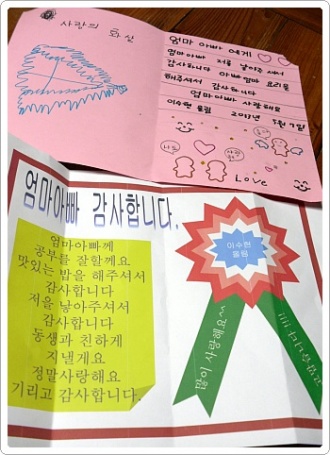 사랑의 화신
엄마 아빠 에게
엄마아빠 저를 낳아주셔서
감사합니다 아빠 엄마 요리를
해주셔서 감사합니다
엄마 아빠 사랑해요
이수현 올림 2013년 5월 7일
Love
엄마아빠 감사합니다.
엄마아빠께
공부를 잘할께요
맛있는 밥을 해주셔서
감사합니다
저을 낳아주셔서
감사합니다
동생과 친하게
지낼게요
정말사랑해요
기리고 감사합니다.
이수현
올림
많이 사랑해요~